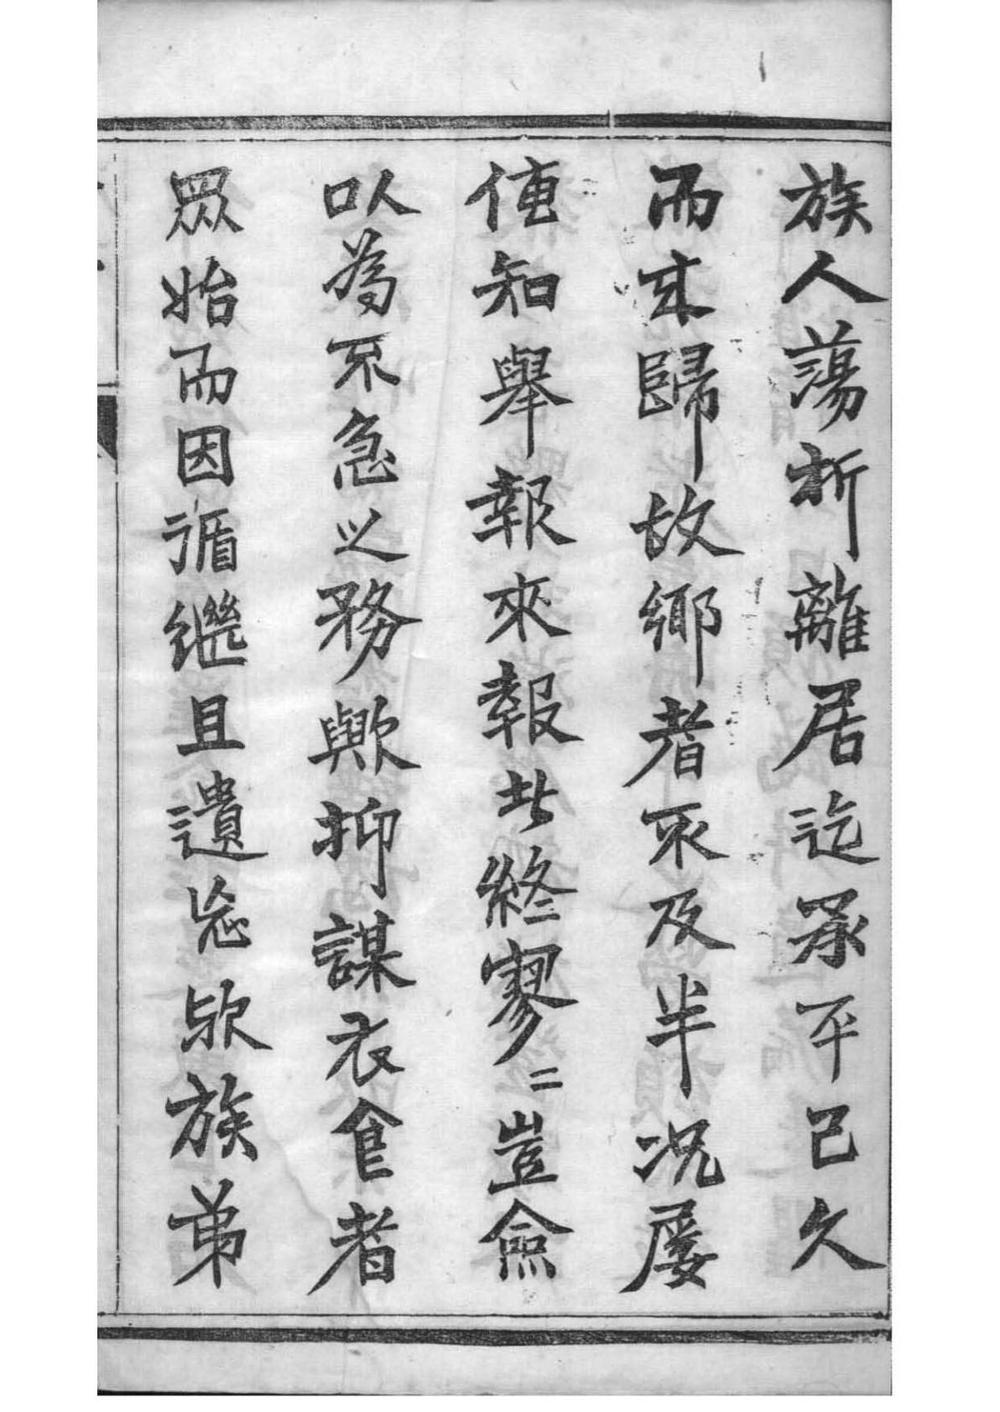 族人蕩析離居迄承平已久
而来歸故鄉者不及半况屡
傳知舉報來報此終寥二豈僉
以為不急之務歟抑謀衣食者
眾始而因循繼且遺忘欤族弟